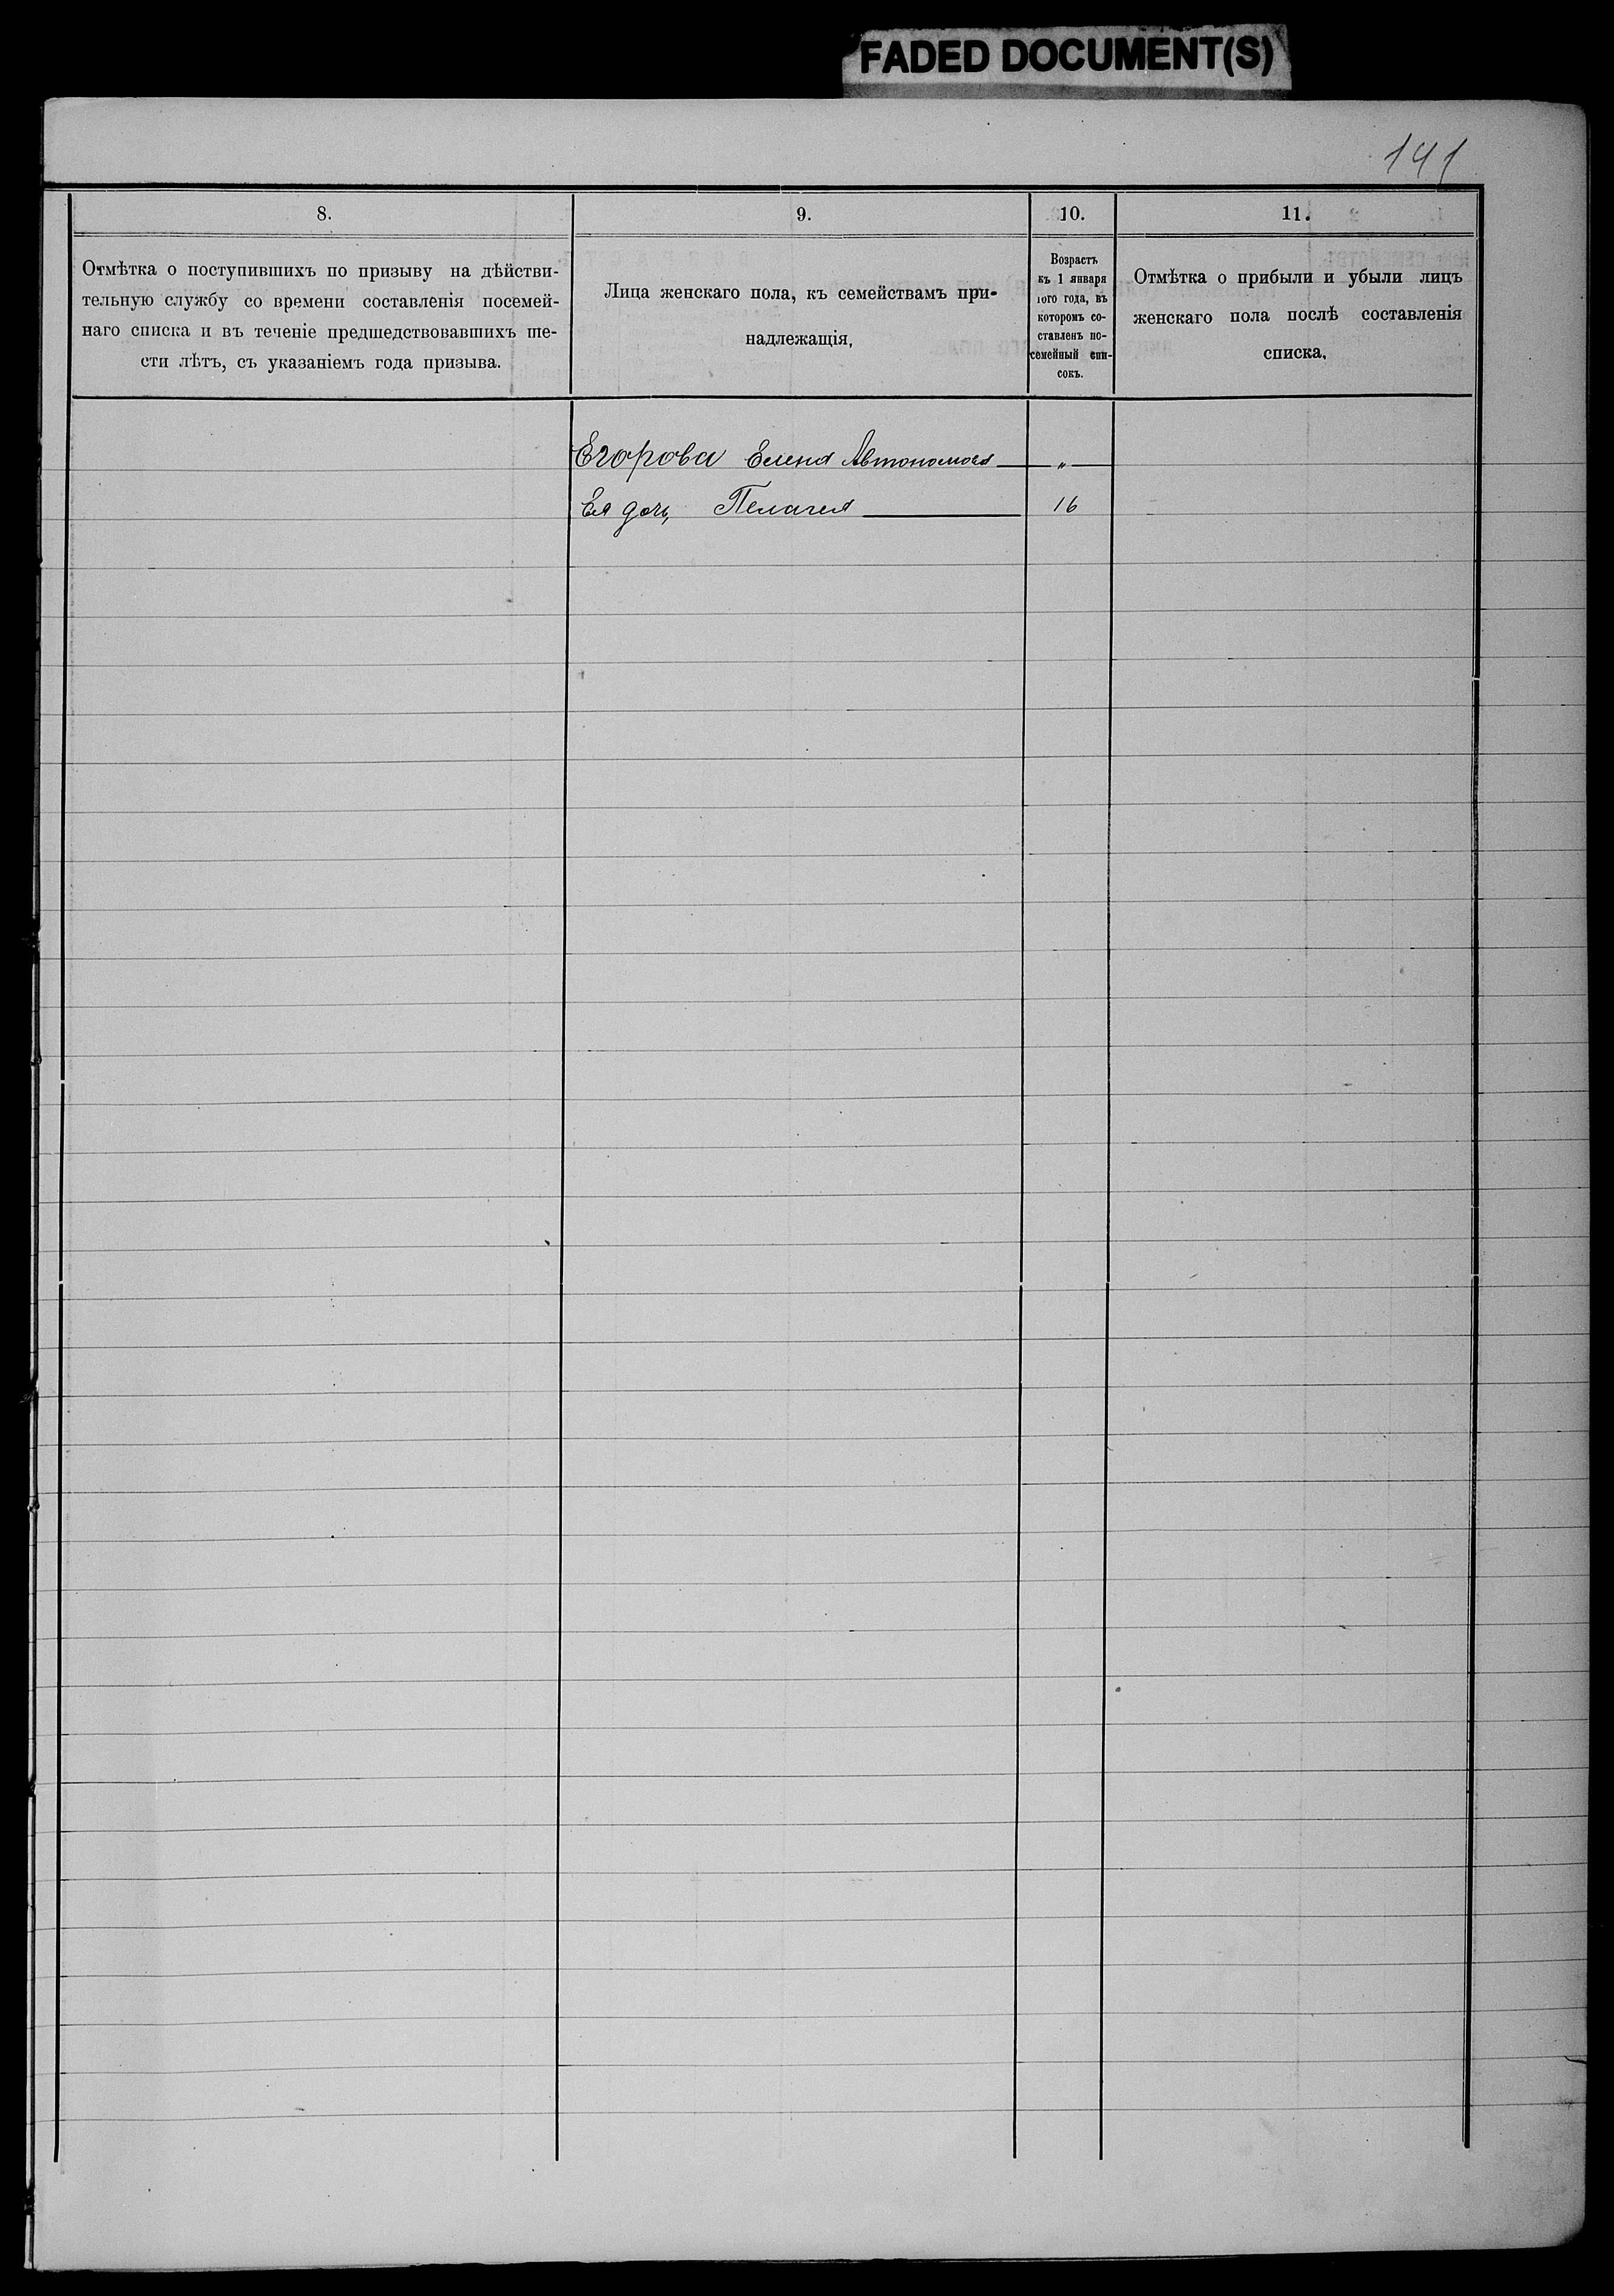 FADED DOCUMENT(S)
141
8.
Отмѣтка о поступившихъ по призыву на дѣйстви-
тельную службу со времени составленія посемей-
наго списка и въ теченіе предшедствовавшихъ ше-
сти лѣтъ, съ указаніемъ года призыва.
9.
Лица женскаго пола, къ семействамъ при-
надлежащія,
10.
Возрастъ
къ 1 января
того года, въ
которомъ со-
ставленъ по-
семейный спи-
сокъ.
11.
Отмѣтка о прибыли и убыли лицъ
женскаго пола послѣ составленія
списка,
Егорова Елена Автономова — „ —
Ея дочь Пелагея — 16